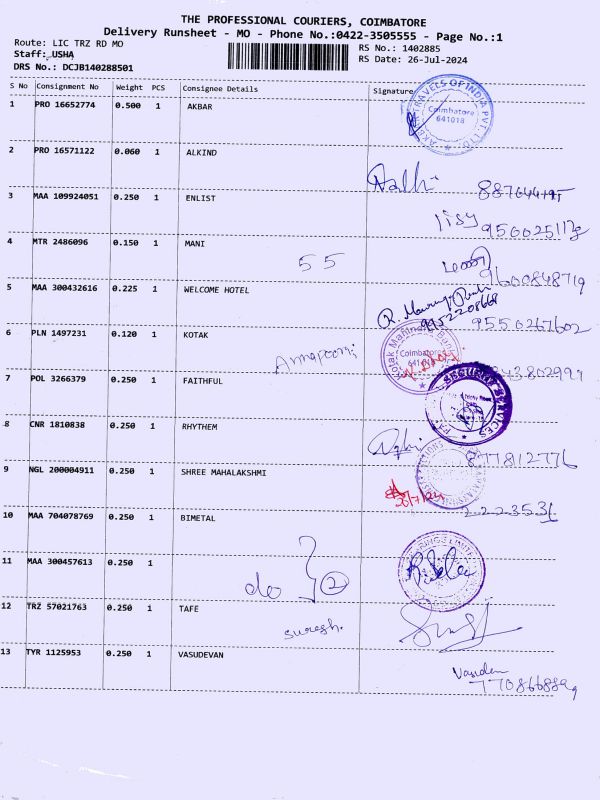 THE PROFESSIONAL COURIERS, COIMBATORE
Delivery Runsheet - MO - Phone No.:0422-3505555 - Page No.:1
Route: LIC TRZ RD MO
RS No.: 1402885
Staff: USHA
RS Date: 26-Jul-2024
DRS No.: DCJB140288501
S No Consignment No Weight PCS Consignee Details Signature
1 PRO 16652774 0.500 1 AKBAR
TRAVELS OF INDIA PVT. LTD.
Coimbatore
641018
2 PRO 16571122 0.060 1 ALKIND
3 MAA 109924051 0.250 1 ENLIST
4 MTR 2486096 0.150 1 MANI
55
9600848719
5 MAA 300432616 0.225 1 WELCOME HOTEL
9952208668
9550267602
6 PLN 1497231 0.120 1 KOTAK
Kotak Mahindra Bank
Coimbatore
7 POL 3266379 0.250 1 FAITHFUL
SECURITY SERVICES
8 CNR 1810838 0.250 1 RHYTHEM
877812776
9 NGL 200004911 0.250 1 SHREE MAHALAKSHMI
10 MAA 704078769 0.250 1 BIMETAL
11 MAA 300457613 0.250 1
do 2
12 TRZ 57021763 0.250 1 TAFE
suresh.
13 TYR 1125953 0.250 1 VASUDEVAN